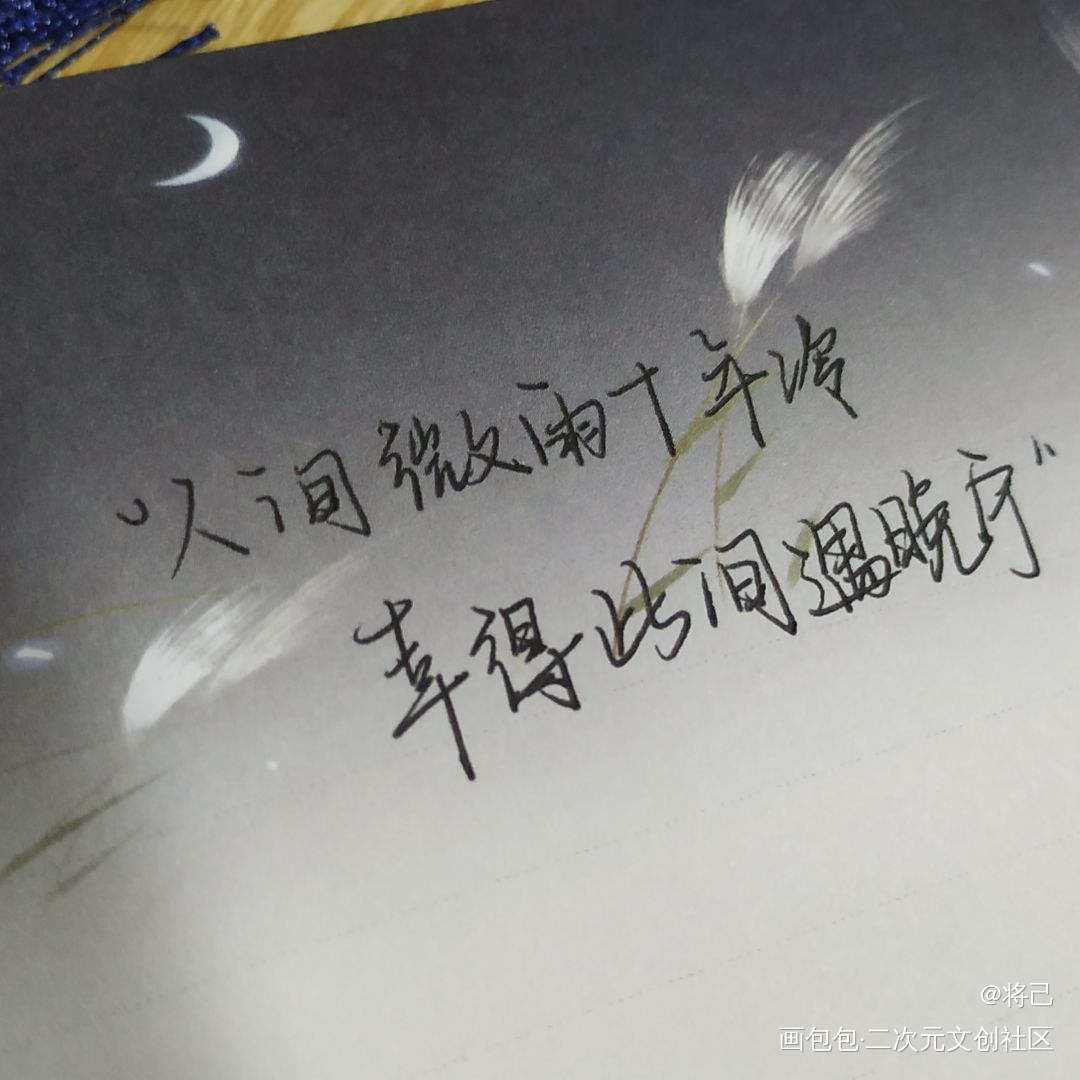 “人间微雨十年冷
幸得此间遇晚宁”
@将己
画包包·二次元文创社区